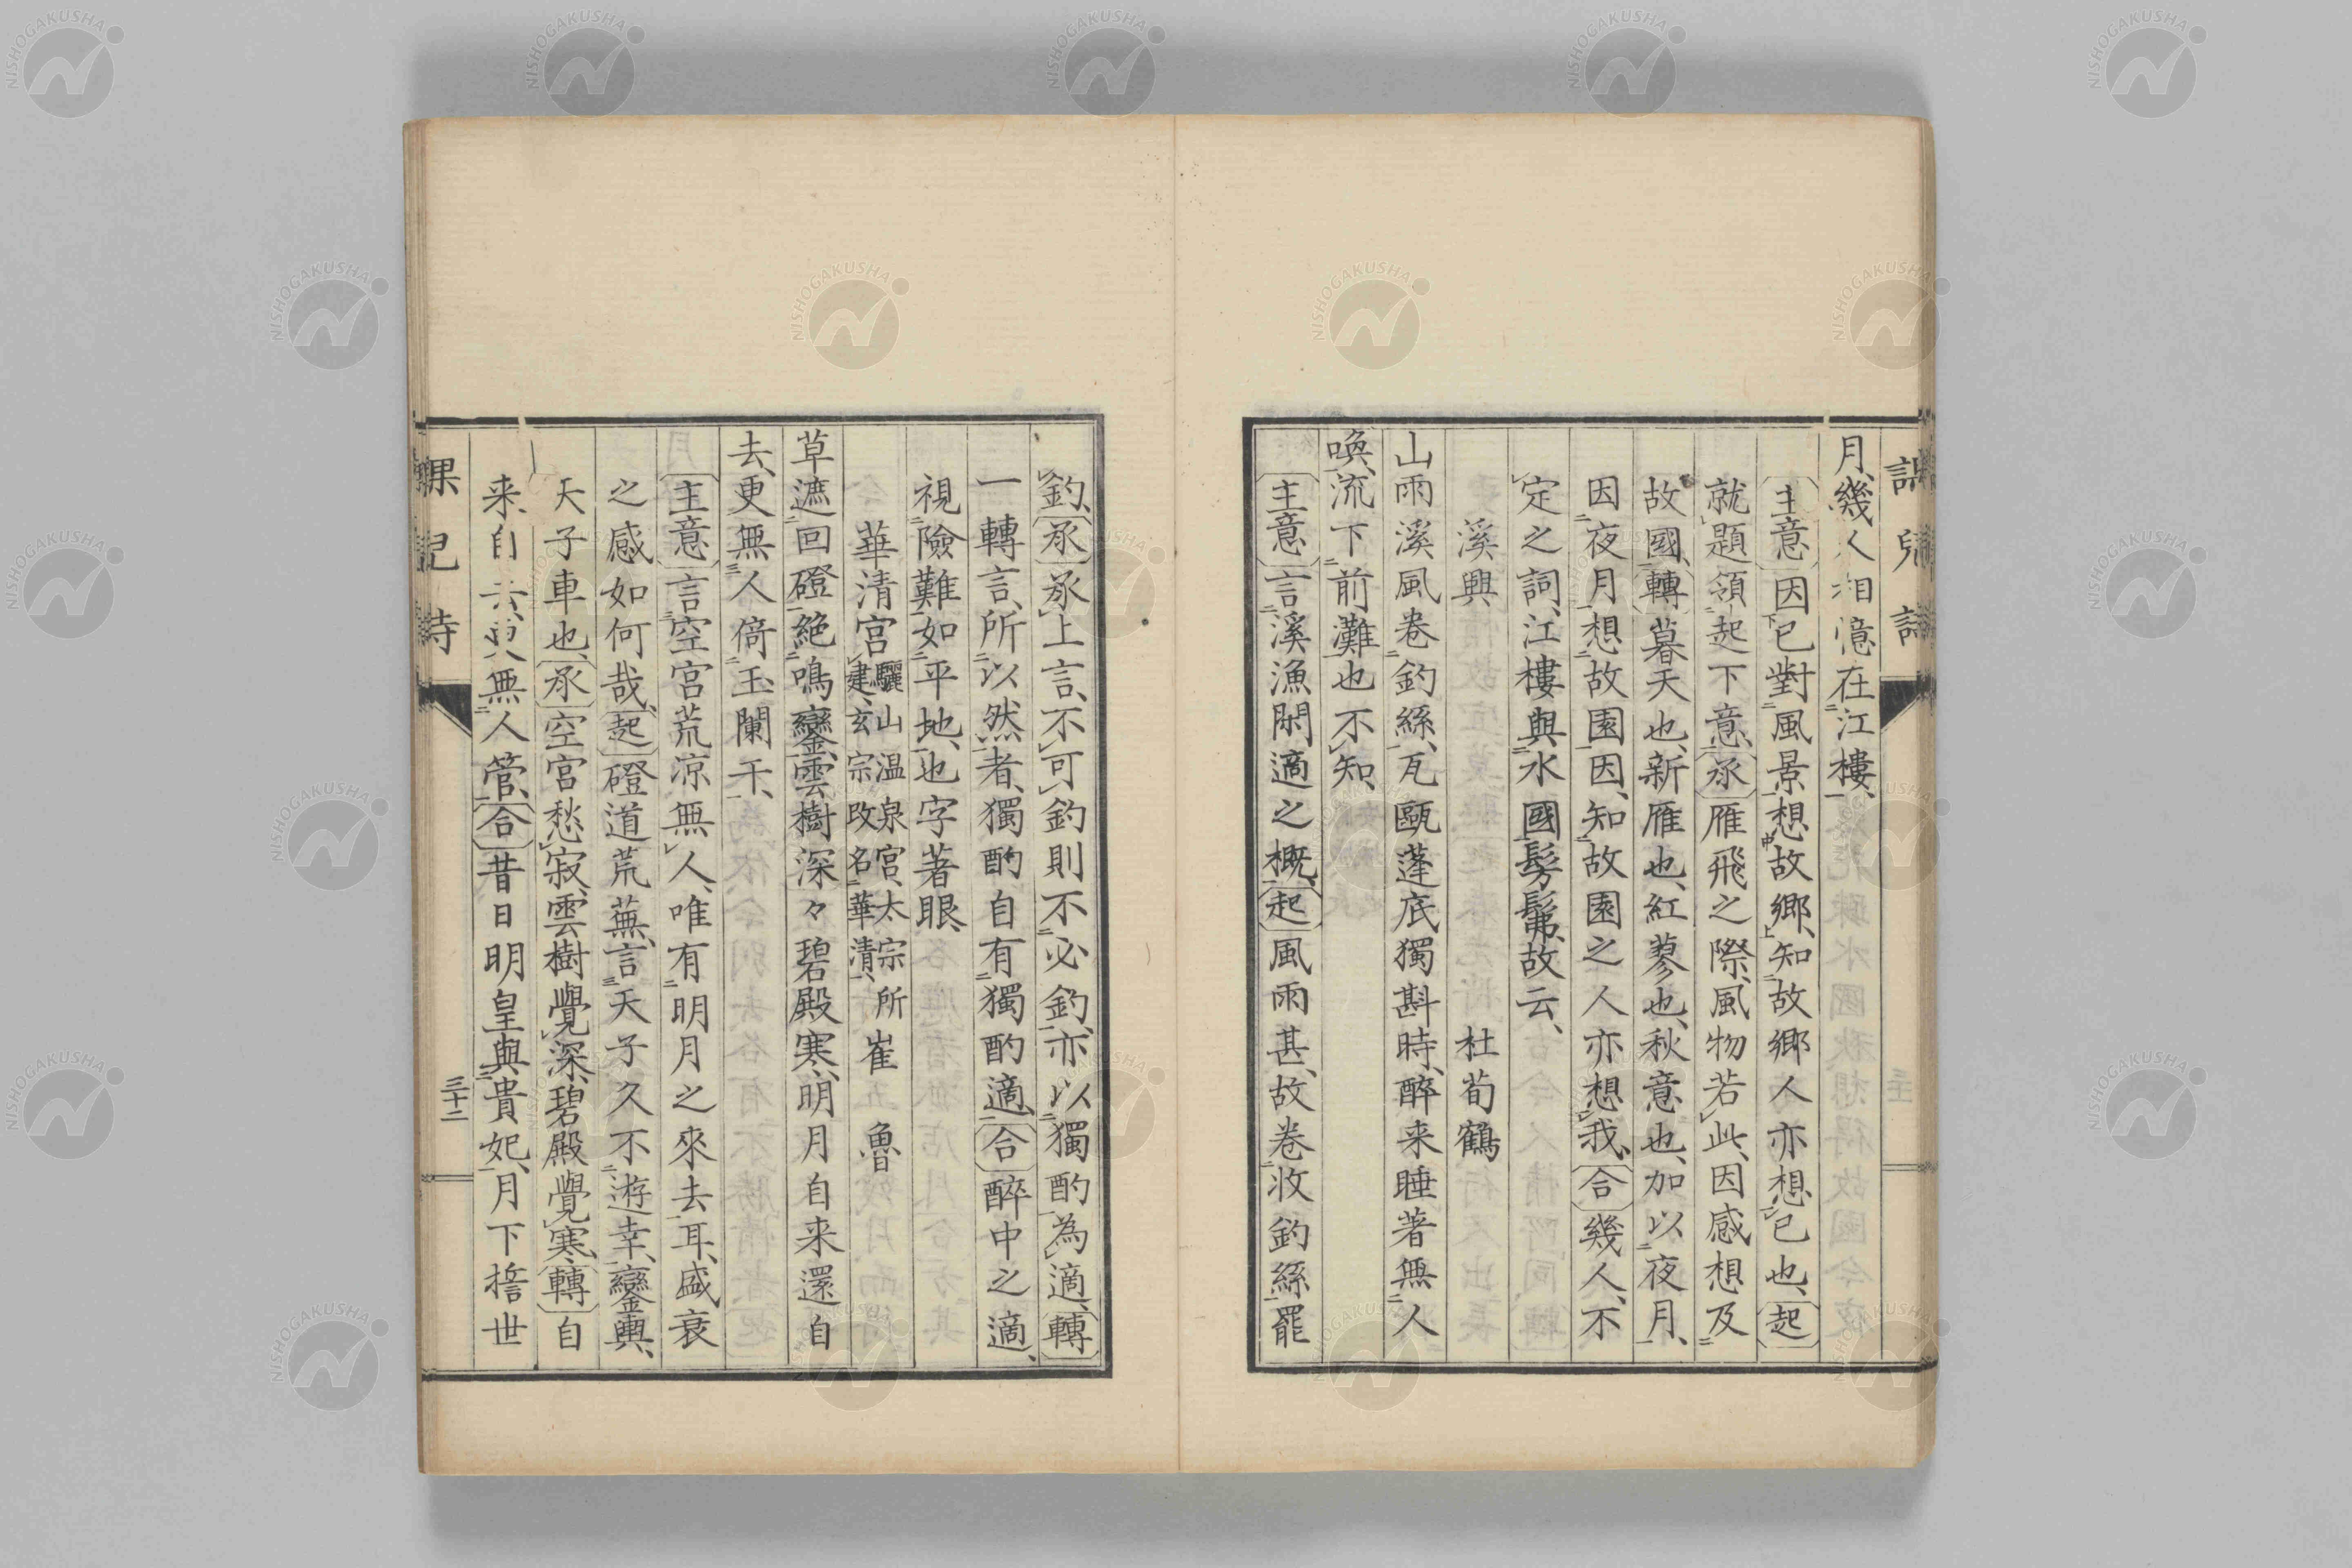 課兒詩
月、幾人相憶在江樓、
主意 因已對風景、想故鄉、知故鄉人亦想已也、起
就題領起下意、承 雁飛之際、風物若此、因感想及
故國、轉 暮天也、新雁也、紅蓼也、秋意也、加以夜月、
因夜月想故園、因知故園之人亦想我、合 幾人、不
定之詞、江樓與水國髣髴、故云、
溪興 杜荀鶴
山雨溪風卷釣絲、瓦甌蓬底獨斟時、醉来睡著無人
喚、流下前灘也不知、
主意 言溪漁閑適之概、起 風雨甚、故卷收釣絲罷
釣、承 承上言、不可釣則不必釣、亦以獨酌為適、轉
一轉言、所以然者、獨酌自有獨酌適、合 醉中之適、
視險難如平地、也字著眼、
華清宮 驪山温泉宮、太宗所建、玄宗改名華清、 崔魯
草遮回磴絶鳴鑾、雲樹深々碧殿寒、明月自来還自
去、更無人倚玉闌干、
主意 言空宮荒凉無人、唯有明月之來去耳、盛衰
之感如何哉、起 磴道荒蕪、言天子久不遊幸、鑾輿、
天子車也、承 空宮愁寂、雲樹覺深、碧殿覺寒、轉 自
来自去、更無人管、合 昔日明皇與貴妃、月下誓世
課兒詩
三十二